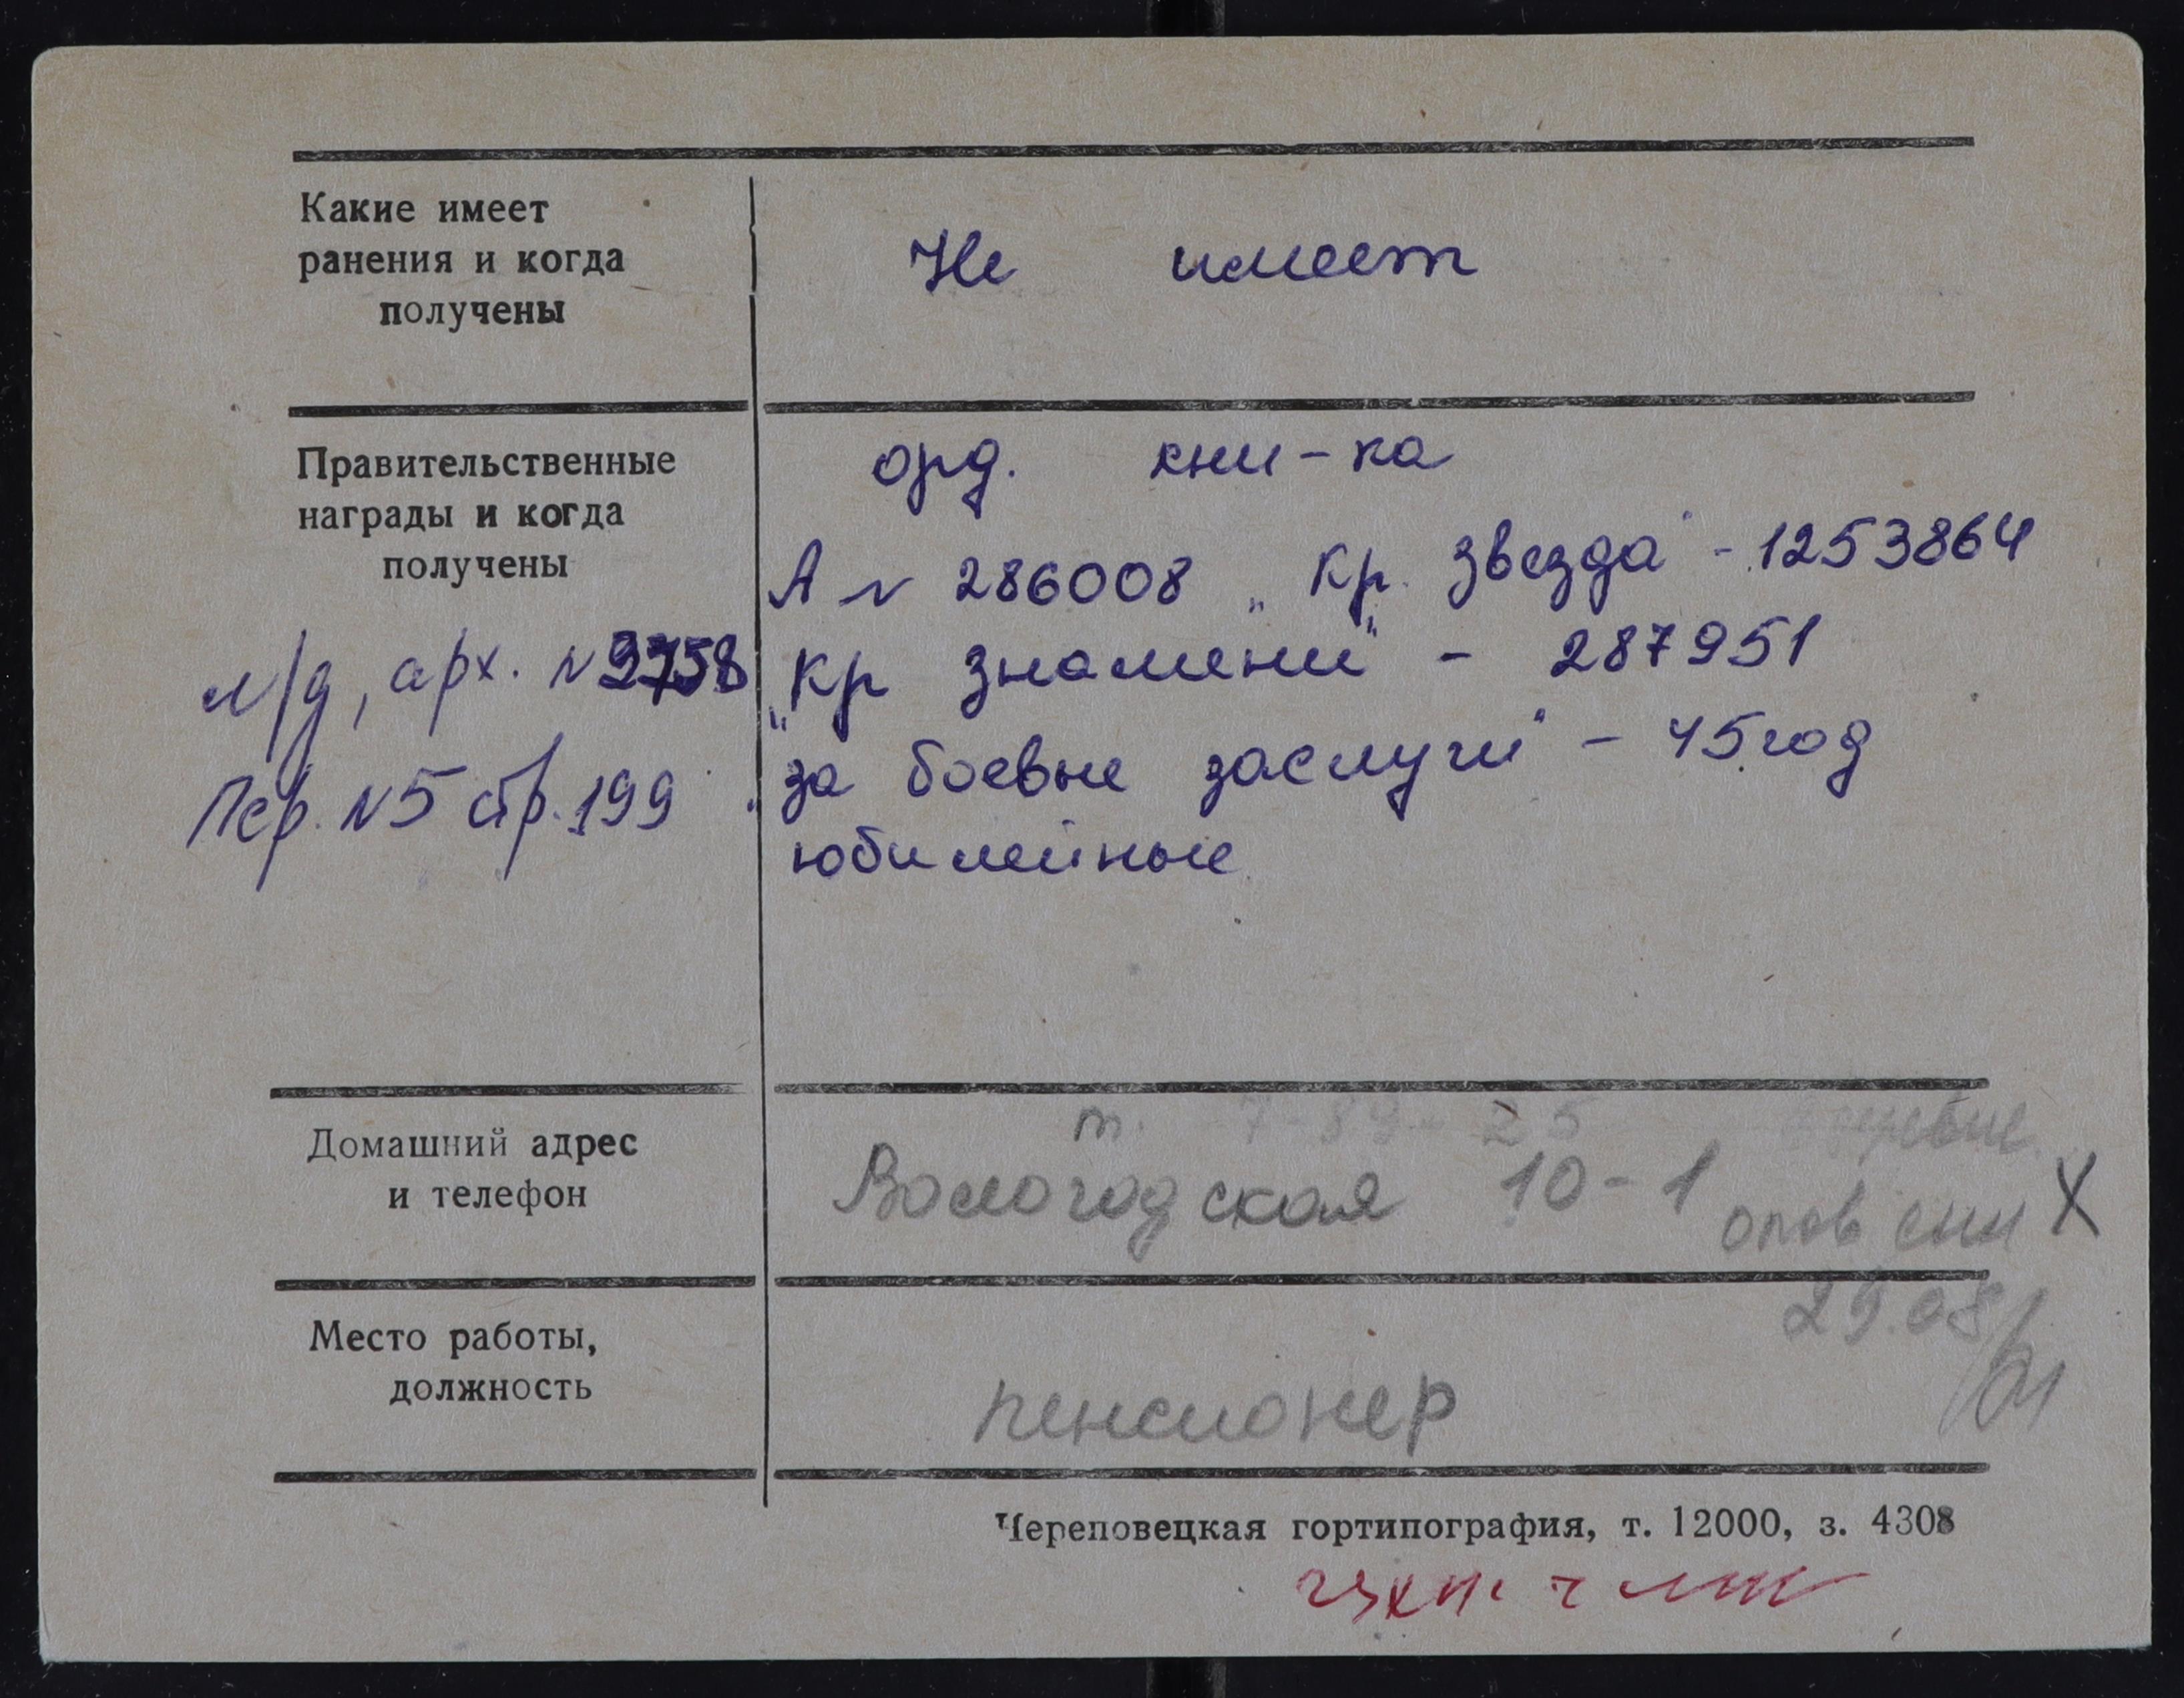 Какие имеет
ранения и когда
получены
Не имеет
Правительственные
награды и когда
получены
л/д, арх. № 9758
Пер. №5 стр. 199
орд. кни-ка
А № 286008 „Кр. Звезда" - 1253864
„Кр Знамени" - 287951
"за боевые заслуги" - 45 год
юбилейные
Домашний адрес
и телефон
т. 7-89-25
Вологодская 10-1
Х
29.08
Место работы,
должность
пенсионер
Череповецкая гортипография, т. 12000, з. 4308